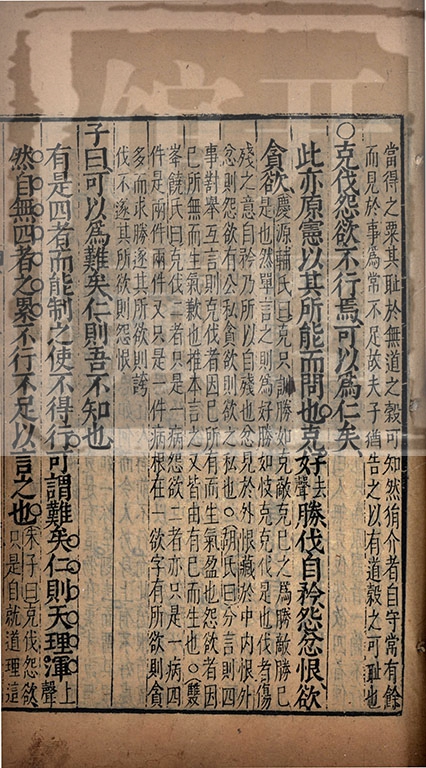 當得之粟其耻於無道之穀可知然狷介者自守常有餘
而見於事爲常不足故夫子猶告之以有道穀之可耻也
○克伐怨欲不行焉可以爲仁矣
此亦原憲以其所能而問也克好去聲勝伐自矜怨忿恨欲
貪欲慶源輔氏曰克只訓勝如克敵克己之爲勝敵勝己
是也然單言之則爲好勝如忮克克伐是也伐者傷
殘之意自矜乃所以自殘也忿見於外恨藏於中内恨外
忿則怨欲有公私貪欲則欲之私也○胡氏曰分言則四
事對舉互言則克伐者因己所有而生氣盈也怨欲者因
己所無而生氣歉也推本言之又皆由有己而生也○雙
峯饒氏曰克伐二者只是一病怨欲二者亦只是一病四
件是兩件兩件又只是一件病根在一欲字有所欲則貪
多而求勝遂其所欲則誇
伐不遂其所欲則怨恨
子曰可以爲難矣仁則吾不知也
有是四者而能制之使不得行可謂難矣仁則天理渾上聲
然自無四者之累不行不足以言之也朱子曰克伐怨欲
只是自就道理這